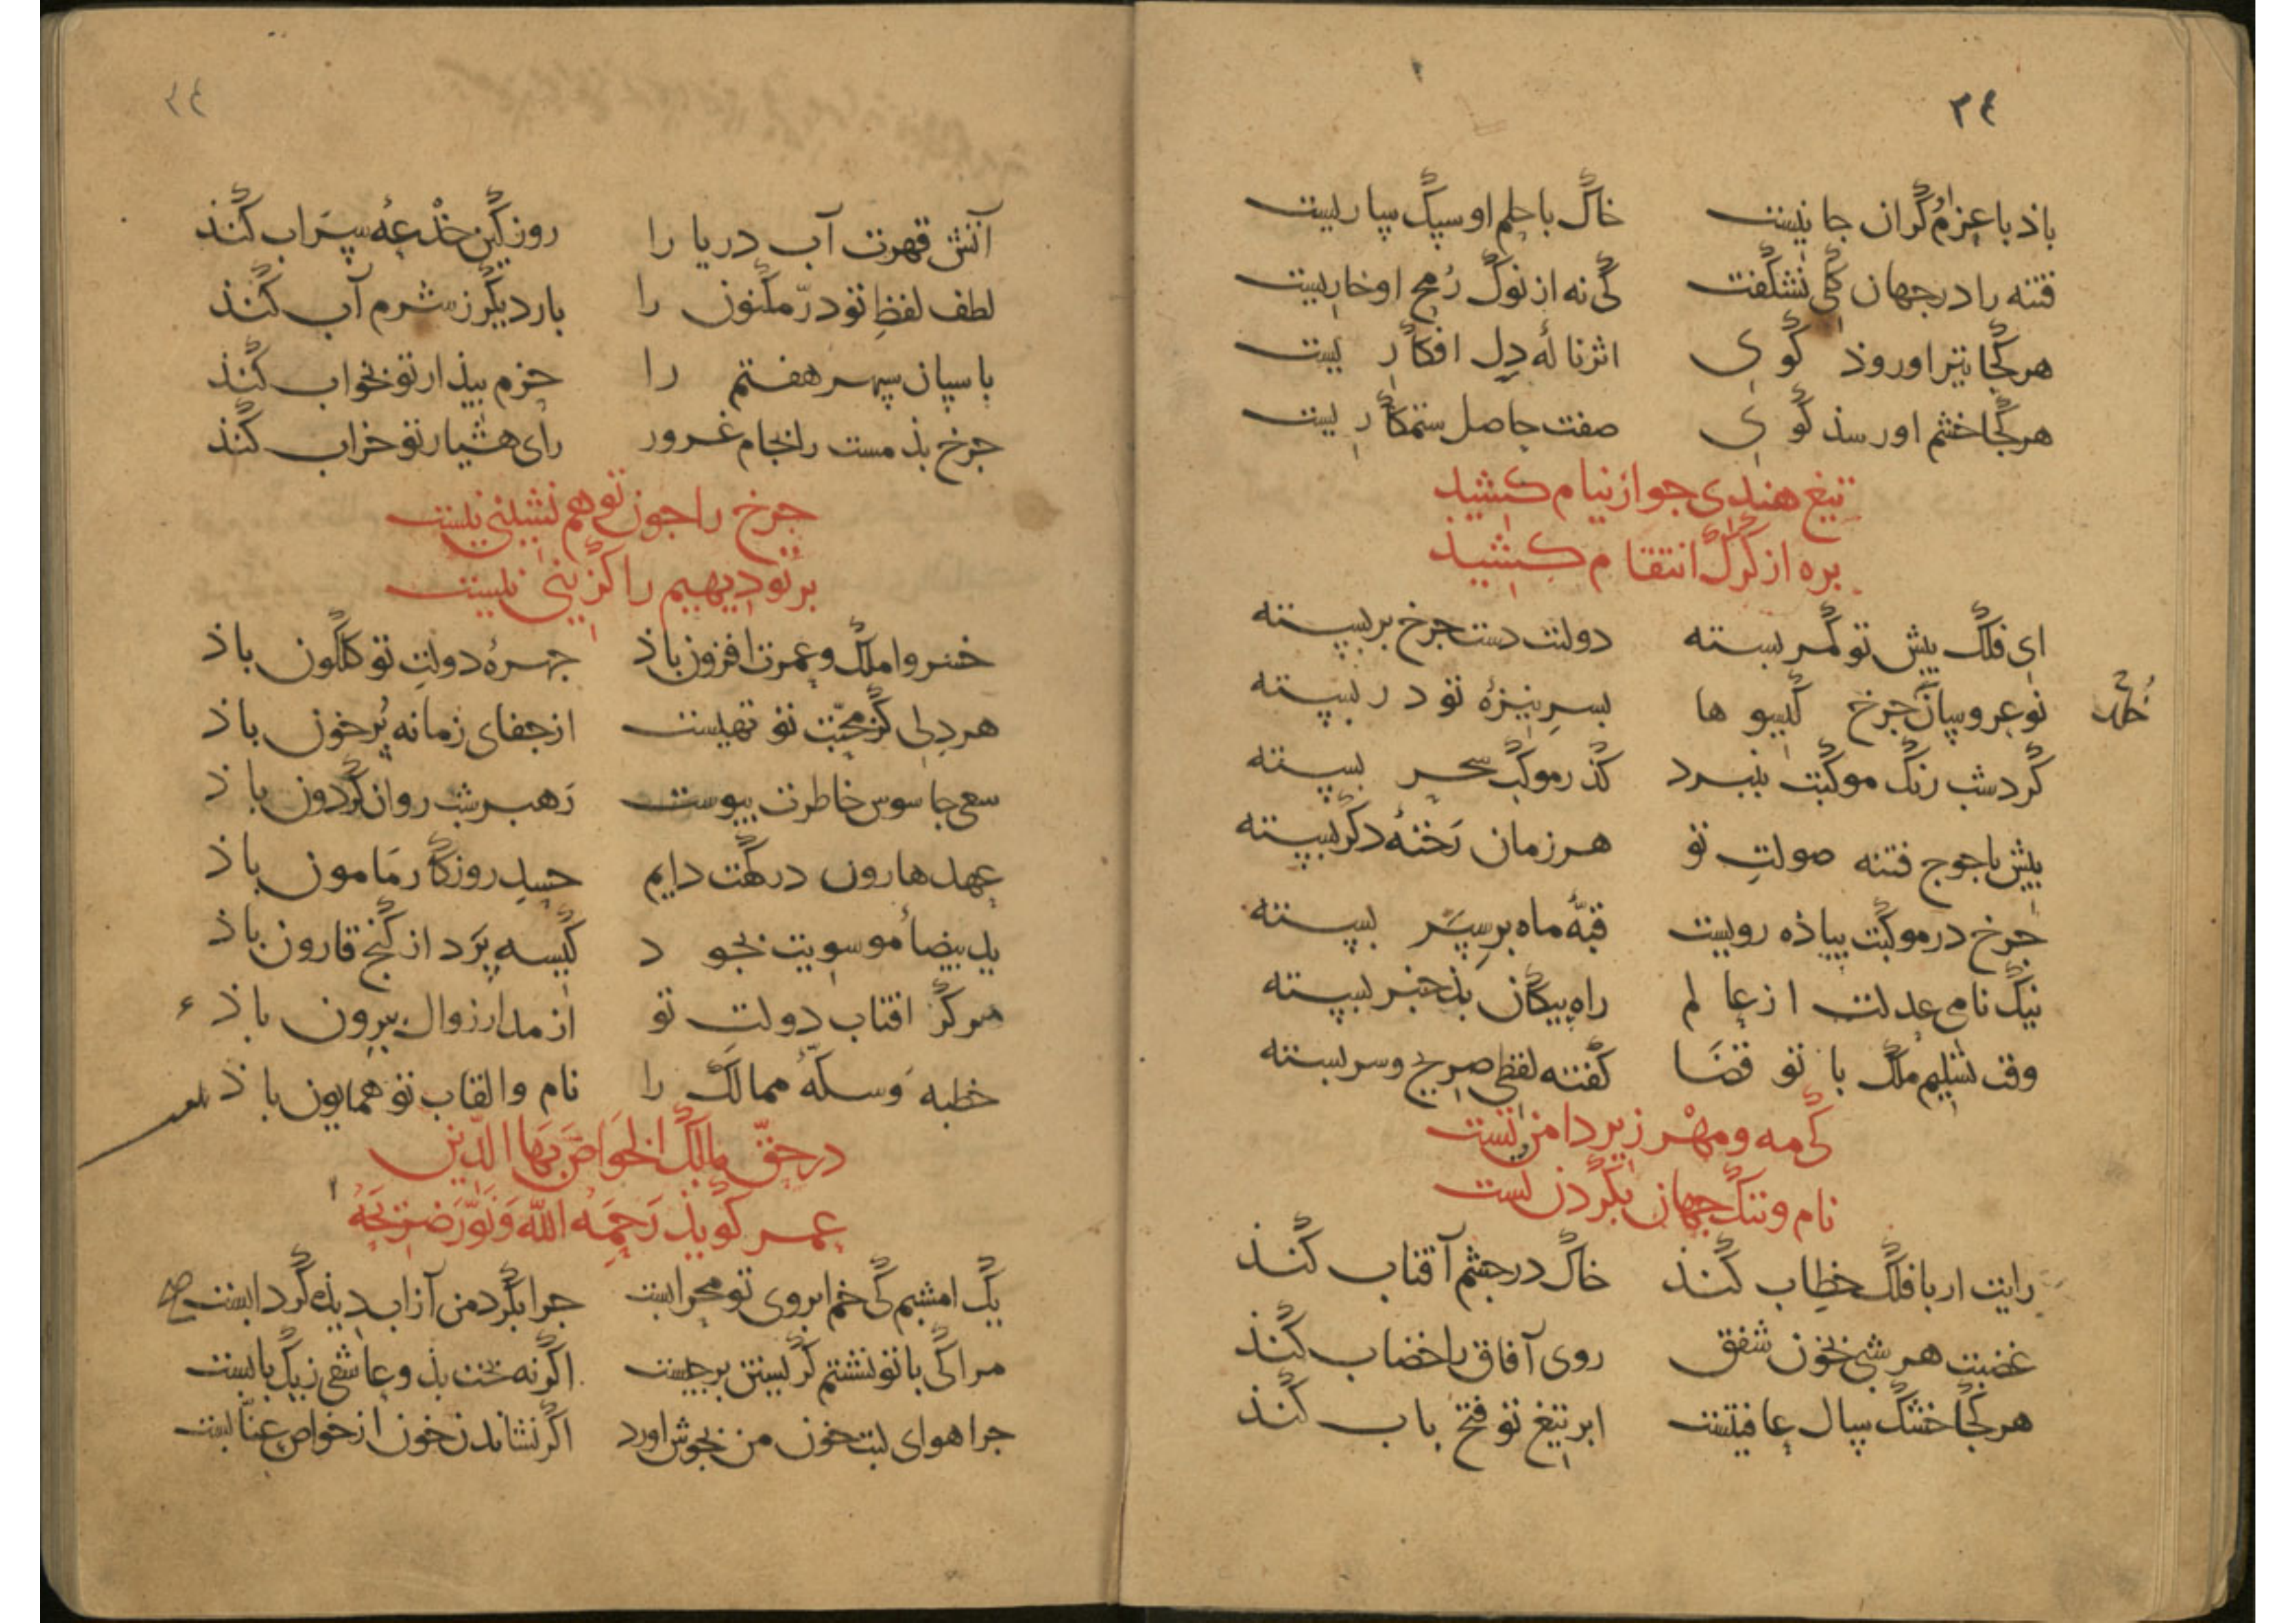 ٣٤
باذ با عزم گران جانیست خاک با حلم او سبک بیاریست
فتنه را در جهان گلی نشکفت کی نه از نوک رمح او خاریست
هرکجا تیر او روذ گوی اثر ناله دل افکاریست
هرکجا خشم او رسذ گوی صفت حاصل ستمکاریست
تیغ هندی جو از نیام کشیذ
بره از گرگ انتقام کشیذ
ای فلک پیش تو کمر بسته دولتت دست جرخ بر بسته
نوعروسان جرخ گیسوها بسر نیزهٔ تو در بسته
گرد شب رنگ موکبت بنبرد گذر موکب سحر بسته
پیش یاجوج فتنه صولت تو هر زمان رخنهٔ دگر بسته
جرخ در موکبت پیاذه رویست قبهٔ ماه بر سپر بسته
نیک نامی عدلت از عالم راه پیکان بذ خبر بسته
وقت تسلیم ملک با تو قضا گفته لفظی صریح و سربسته
کی مه و مهر زیر دامن تست
نام و ننگ جهان بگردن تست
رایت ار با فلک خطاب کنذ خاک در جشم آفتاب کنذ
غضبت هر شبی بخون شفق روی آفاق را خضاب کنذ
هرکجا خشک سال عافیتست ابر تیغ تو فتح باب کنذ
٣٤
آتش قهرت آب دریا را روزکین خدعهٔ سراب کنذ
لطف لفظ تو در مکنون را بار دیگر ز شرم آب کنذ
باسبان سپهر هفتم را حزم بیذار تو بخواب کنذ
جرخ بذ مست را بجام غرور رای هشیار تو خراب کنذ
جرخ را جون تو هم نشینی نیست
بر تو دیهیم را گزینی نیست
خسروا ملک و عمرت افزون باذ جهرهٔ دولت تو گلگون باذ
هر دلی کز محبت تو تهیست از جفای زمانه پر خون باذ
سعی جاسوس خاطرت پیوست رهبر شب روان گردون باذ
عهد هارون درگهت دایم حسد روزگار مامون باذ
ید بیضاء موسویت بجود کیسه پرداز گنج قارون باذ
مرکز افتاب دولت تو از مدار زوال بیرون باذ
خطبه و سکهٔ ممالک را نام و القاب تو همایون باذ
در حق مالک الخواص بهاالدین
عمر گویذ رحمه الله و نور ضریحه
یک امشبم کی خم ابروی تو محرابست جرا بگرد من از آب دیذه گردابست
مرا کی با تو نشستم گریستن برجیست اگر نه بخت بذ و عاشقی ز یک بابست
جرا هوای لبت خون من بجوش اورد اگر نشاندن خون از خواص عنابست